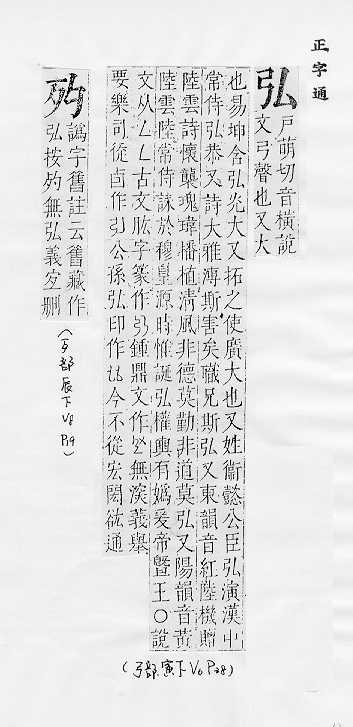 正字通
弘 戸萌切音橫說
文弓聲也又大
也易坤含弘光大又拓之使廣大也又姓衞懿公臣弘演漢中
常侍弘恭又詩大雅溥斯害矣職兄斯弘又東韻音紅陸機贈
陸雲詩懷襲瑰瑋播植淸風非德莫勤非道莫弘又陽韻音黃
陸雲陸常侍誄於穆皇源時惟誕弘權輿有嬀爰帝曁王○說
文从厶厶古文肱字篆作弘鍾鼎文作 無深義舉
要樂司從卣作引公孫弘印作 今不從宏閎紘通
(弓部寅下V6 P28)
譌字舊註云舊藏作
弘按 無弘義宜刪
(歹部辰下V8 P19)